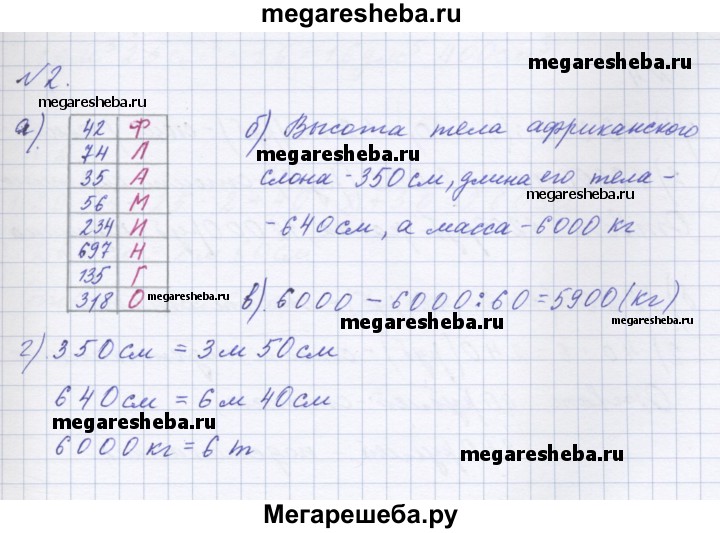 megaresheba.ru
megaresheba.ru
№2.
megaresheba.ru
а).
42 Ф
74 Л
35 А
56 М
234 И
697 Н
135 Г
318 О
megaresheba.ru
б). Высота тела африканского
megaresheba.ru
слона - 350 см, длина его тела -
megaresheba.ru
- 640 см, а масса - 6000 кг
в). 6000 - 6000 : 60 = 5900 (кг)
megaresheba.ru
megaresheba.ru
г). 350 см = 3 м 50 см
640 см = 6 м 40 см
megaresheba.ru
6000 кг = 6 т
megaresheba.ru
Мегарешеба.ру